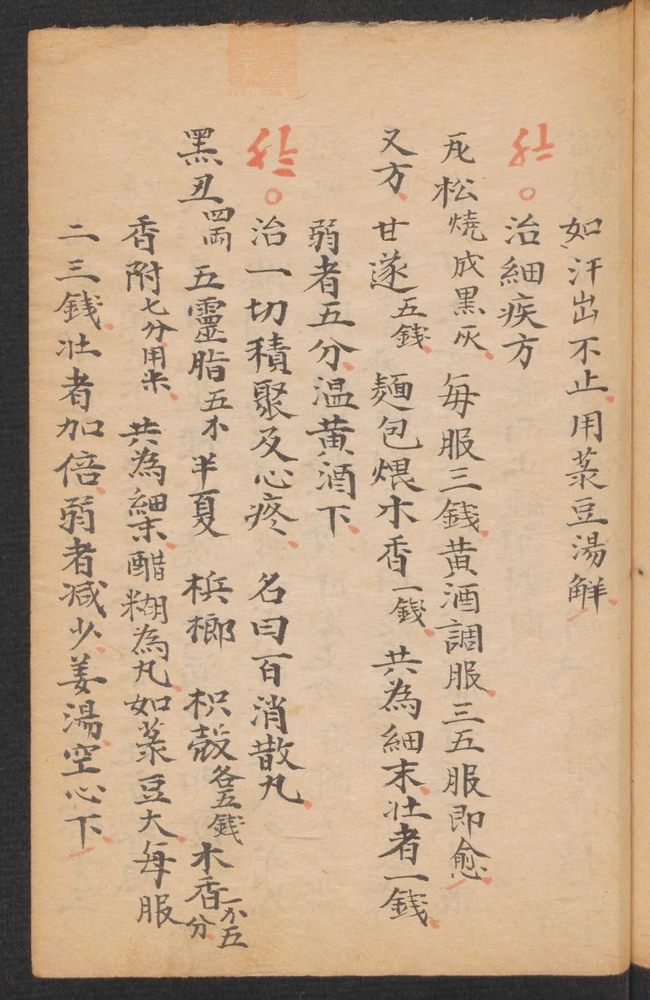 如汗出不止用菉豆湯解
治細疾方
瓦松燒成黑灰 每服三錢黄酒調服三五服即愈
又方 甘遂五錢 麵包煨木香一錢 共為細末壮者一錢
弱者五分温黄酒下
治一切積聚及心疼 名曰百消散丸
黑丑四両 五靈脂五小 半夏 梹榔 枳殼各五錢 木香一小五分
香附七分用米 共為細末醋糊為丸如菉豆大每服
二三錢壮者加倍弱者减少姜湯空心下